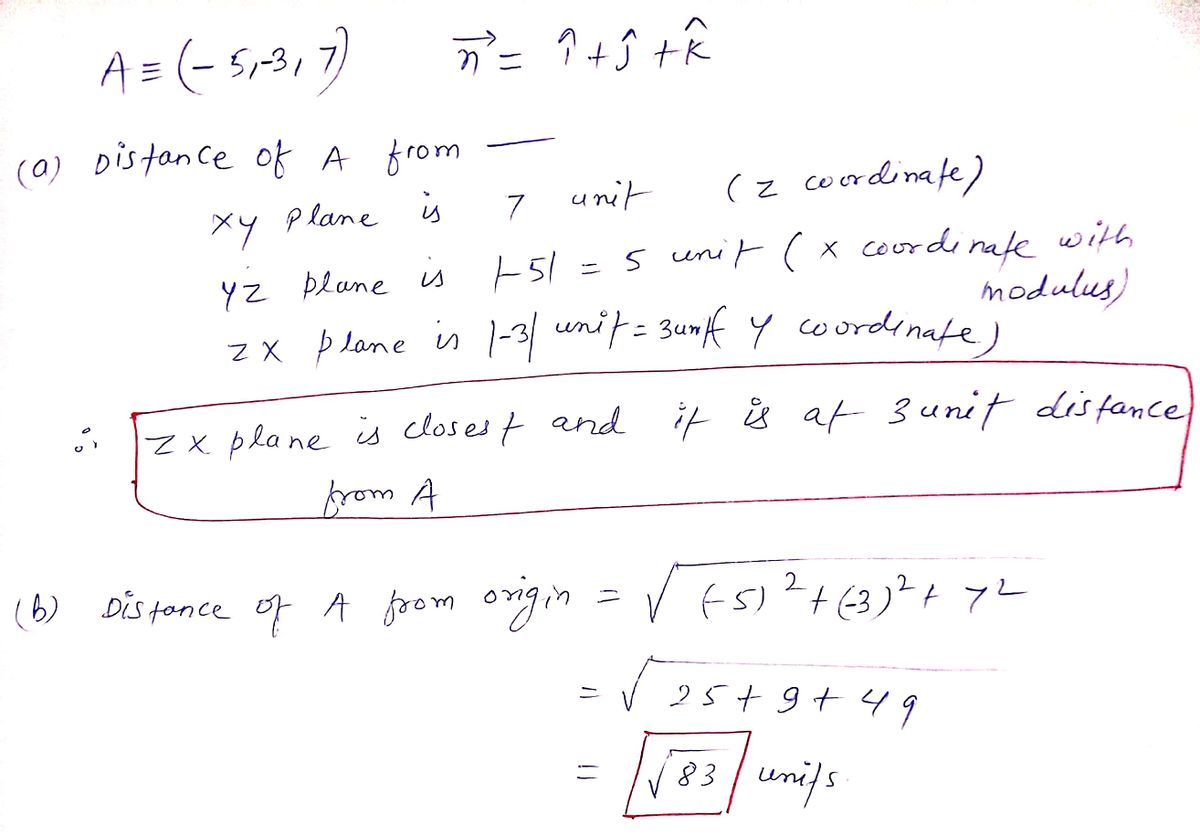 A ≡ (-5,-3, 7) n⃗ = î + ĵ + k̂
(a) Distance of A from —
xy plane is 7 unit (z coordinate)
yz plane is |-5| = 5 unit (x coordinate with modulus)
zx plane is |-3| unit = 3 unit (y coordinate)
∴ zx plane is closest and it is at 3 unit distance
from A
(b) Distance of A from origin = √(-5)² + (-3)² + 7²
= √25 + 9 + 49
= √83 units.